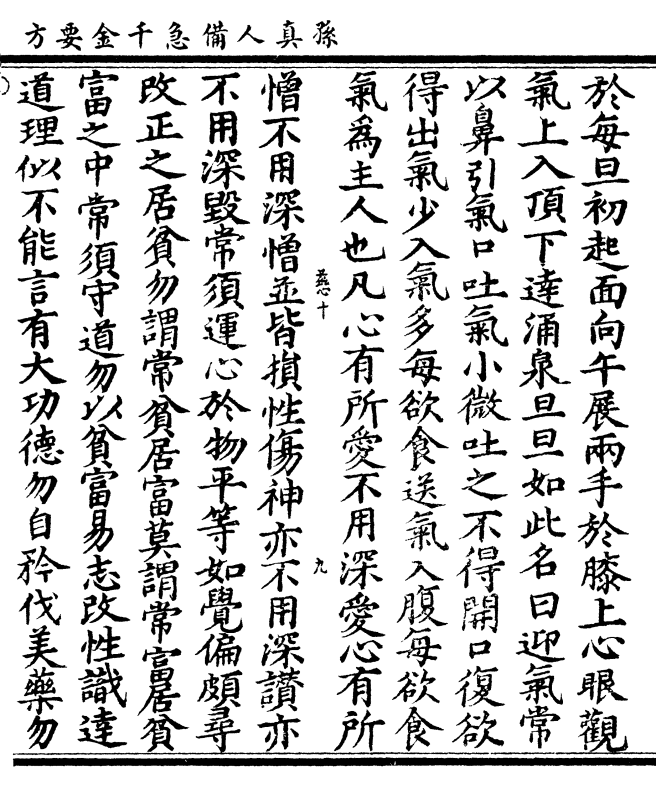 孫真人備急千金要方
於每旦初起面向午展兩手於膝上心眼觀
氣上入頂下達涌泉旦旦如此名曰迎氣常
以鼻引氣口吐氣小微吐之不得開口復欲
得出氣少入氣多每欲食送氣入腹每欲食
氣為主人也凡心有所愛不用深愛心有所
慈十
九
憎不用深憎並皆損性傷神亦不用深讚亦
不用深毀常須運心於物平等如覺偏頗尋
改正之居貧勿謂常貧居富莫謂常富居貧
富之中常須守道勿以貧富易志改性識達
道理似不能言有大功德勿自矜伐美藥勿